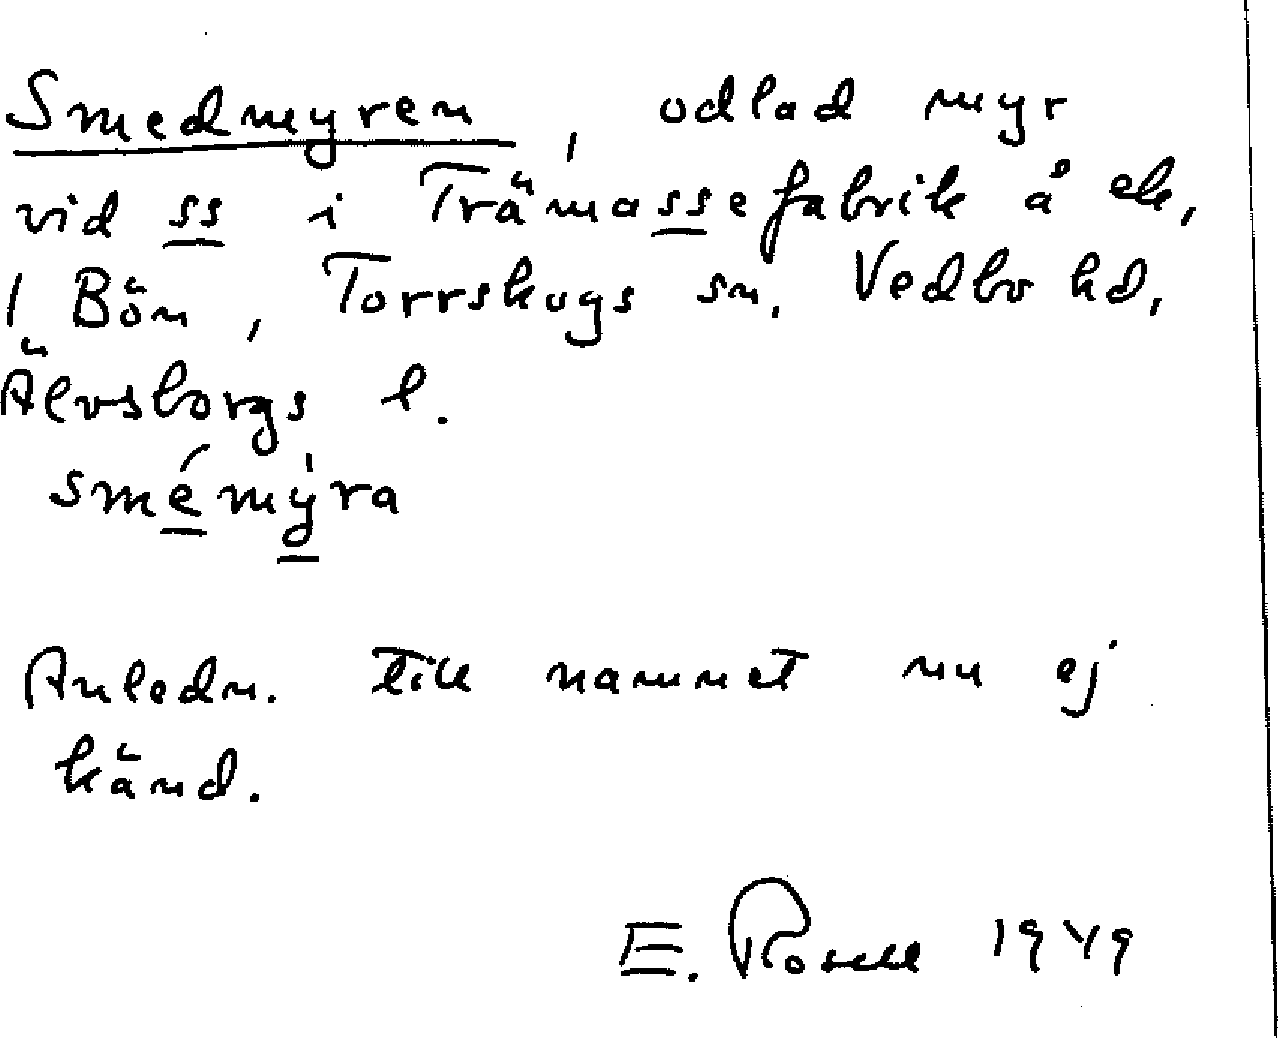 Smedmyren, odlad myr
vid ss i Trämassefabrik å ek,
1 Bön, Torrskogs sn. Vedbo hd,
Älvsborgs l.
smémy̍ra
Anledn. till namnet nu ej
känd.
E. Rosell 1949